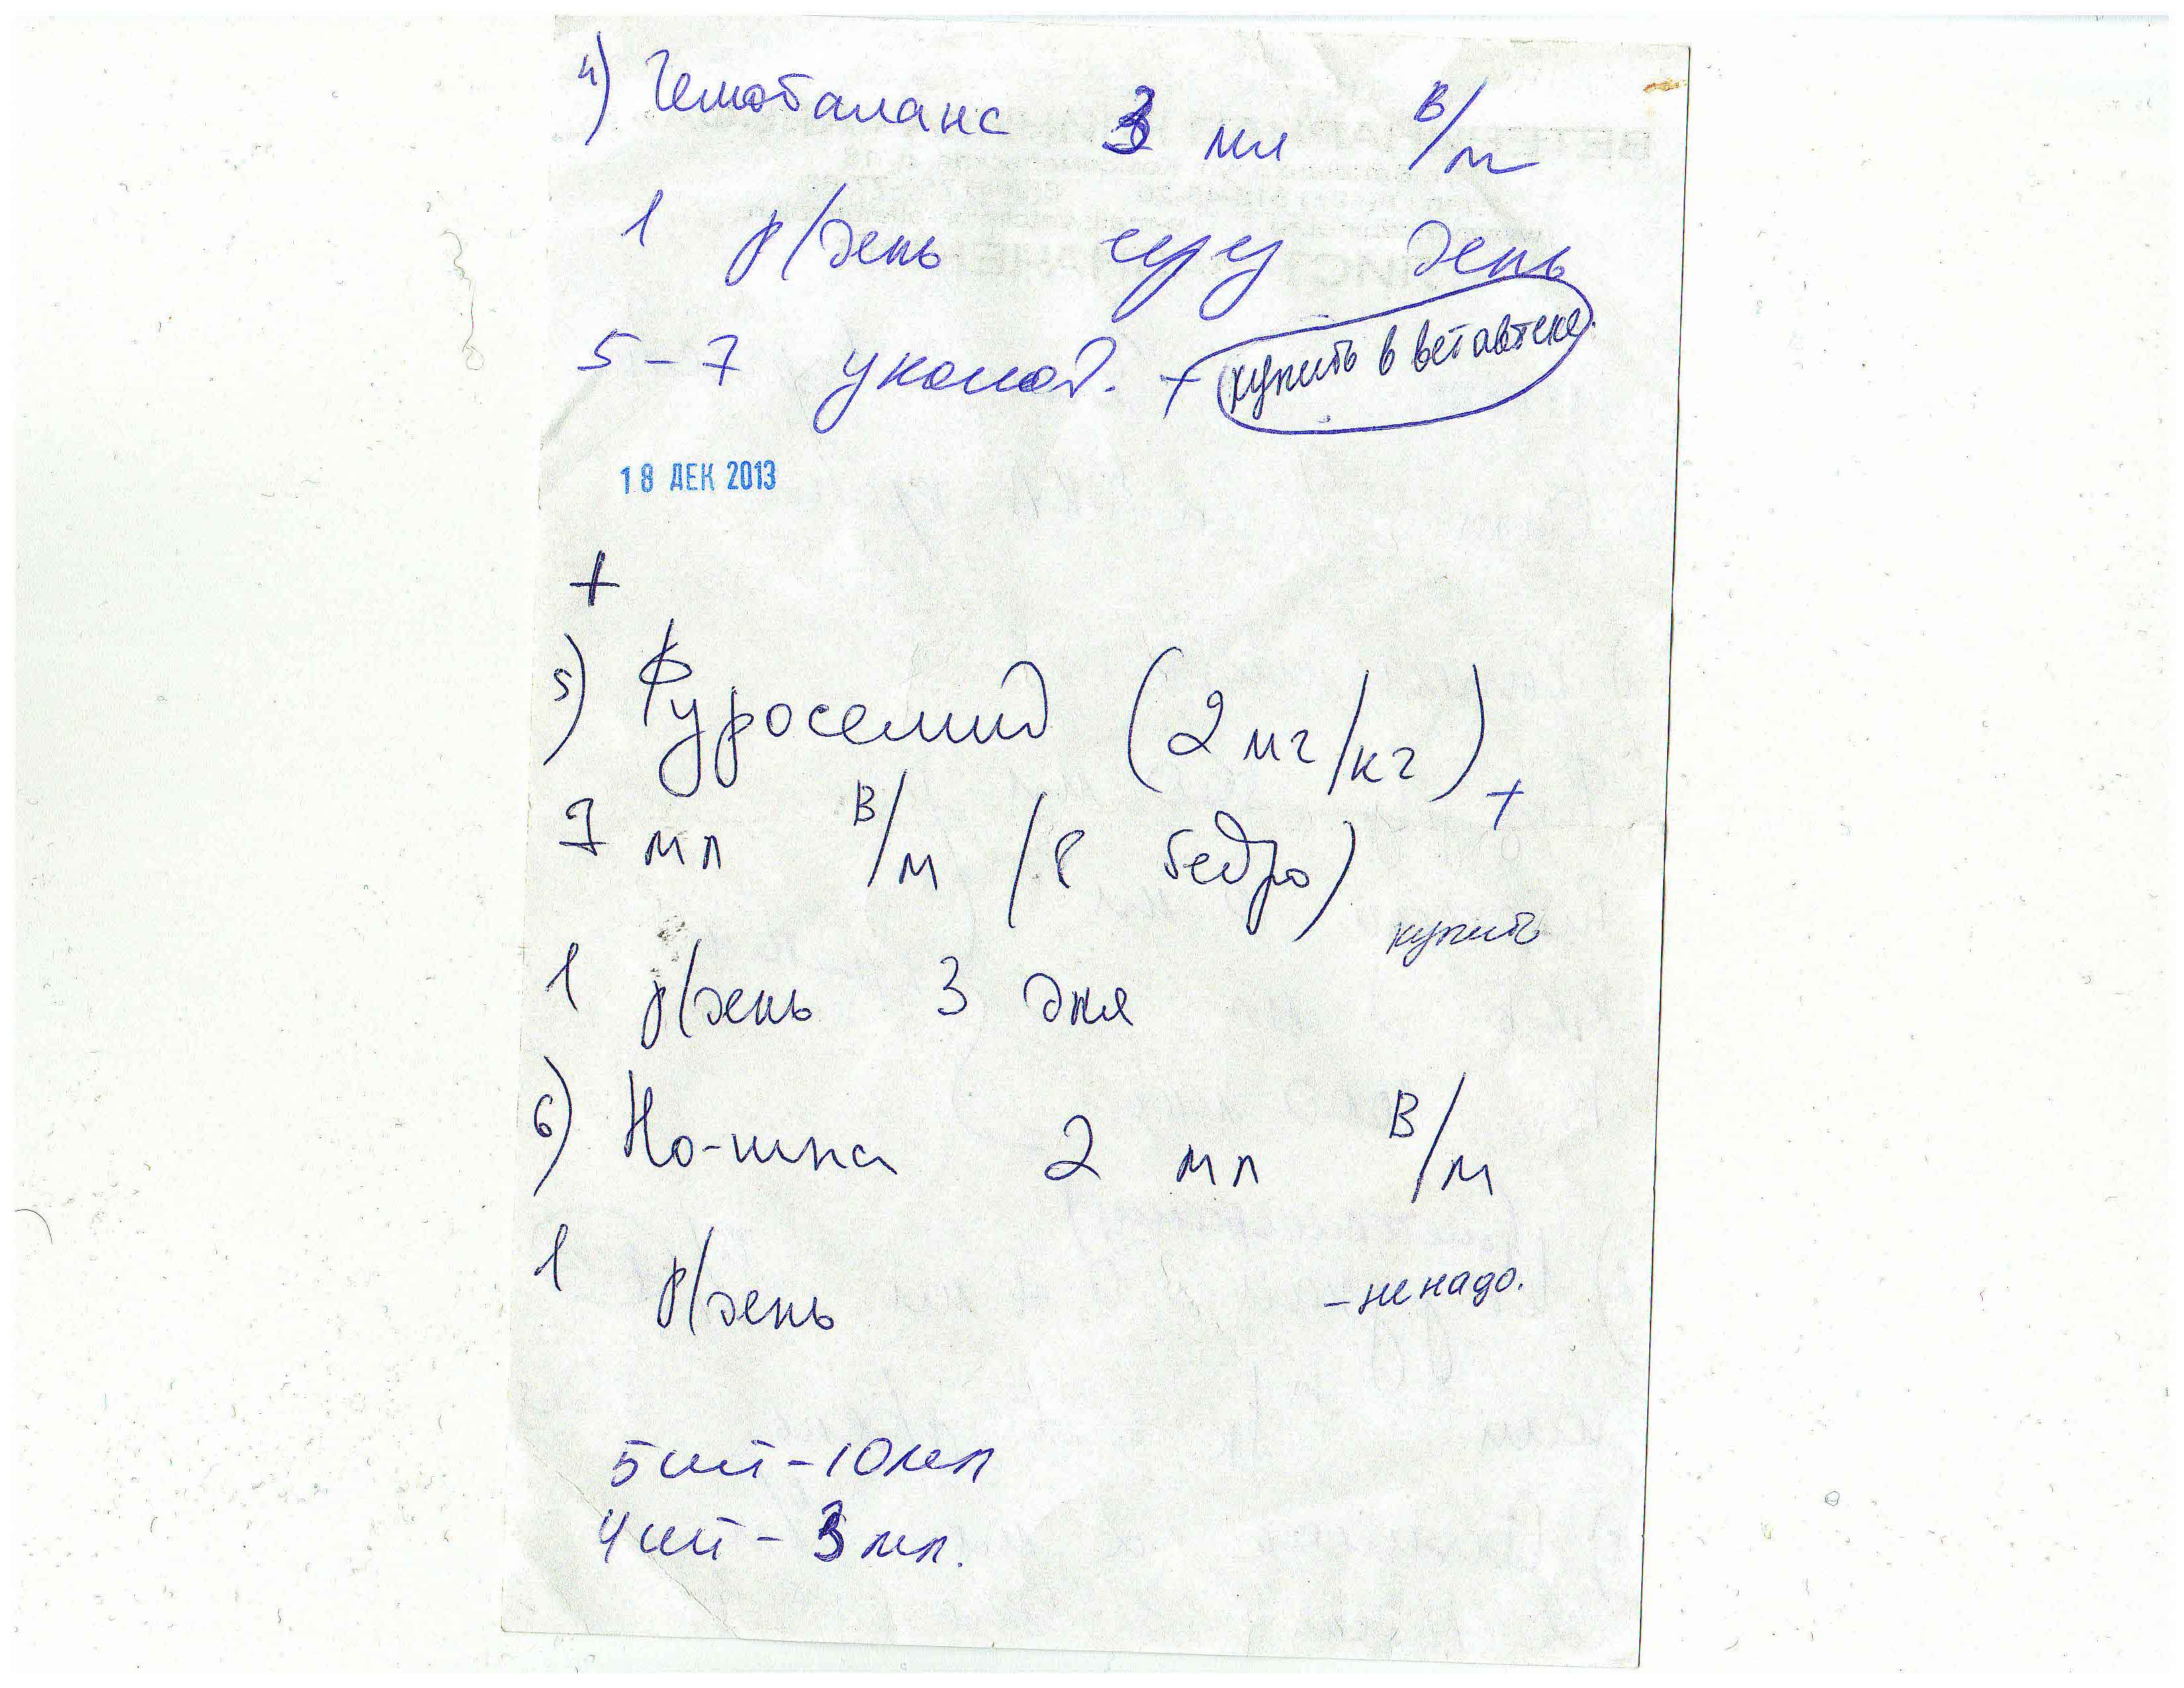 4) Гемобаланс 3 мл в/м
1 р/день через день
5-7 уколов. + купить в ветаптеке.
18 ДЕК 2013
+
5) Фуросемид (2 мг/кг) +
7 мл в/м (в бедро)
купить
1 р/день 3 дня
6) Но-шпа 2 мл в/м
1 р/день - не надо.
5 шт - 10 мл
4 шт - 3 мл.